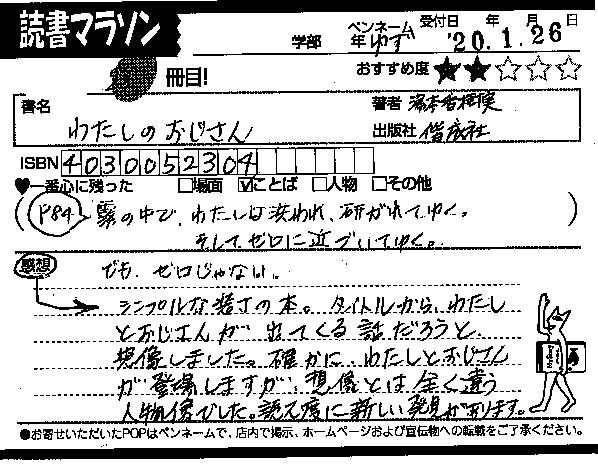 読書マラソン
学部 年 ペンネーム ゆず 受付日 '20年.1月.26日
冊目!
おすすめ度 ★★☆☆☆
書名 わたしのおじさん
著者 湯本香樹実
出版社 偕成社
ISBN 4030052304
♥一番心に残った □場面 ☑ことば □人物 □その他
(P84 霧の中で、わたしは洗われ、研がれてゆく。
そしてゼロに近づいてゆく。)
でも、ゼロじゃない。
感想
シンプルな装丁の本。タイトルから、わたし
とおじさんが 出てくる話だろうと
想像しました。確かに、わたしとおじさん
が登場しますが、想像とは全く違う
人物像でした。読む度に新しい発見があります。
●お寄せいただいたPOPはペンネームで、店内で掲示、ホームページおよび宣伝物への転載をご了承ください。